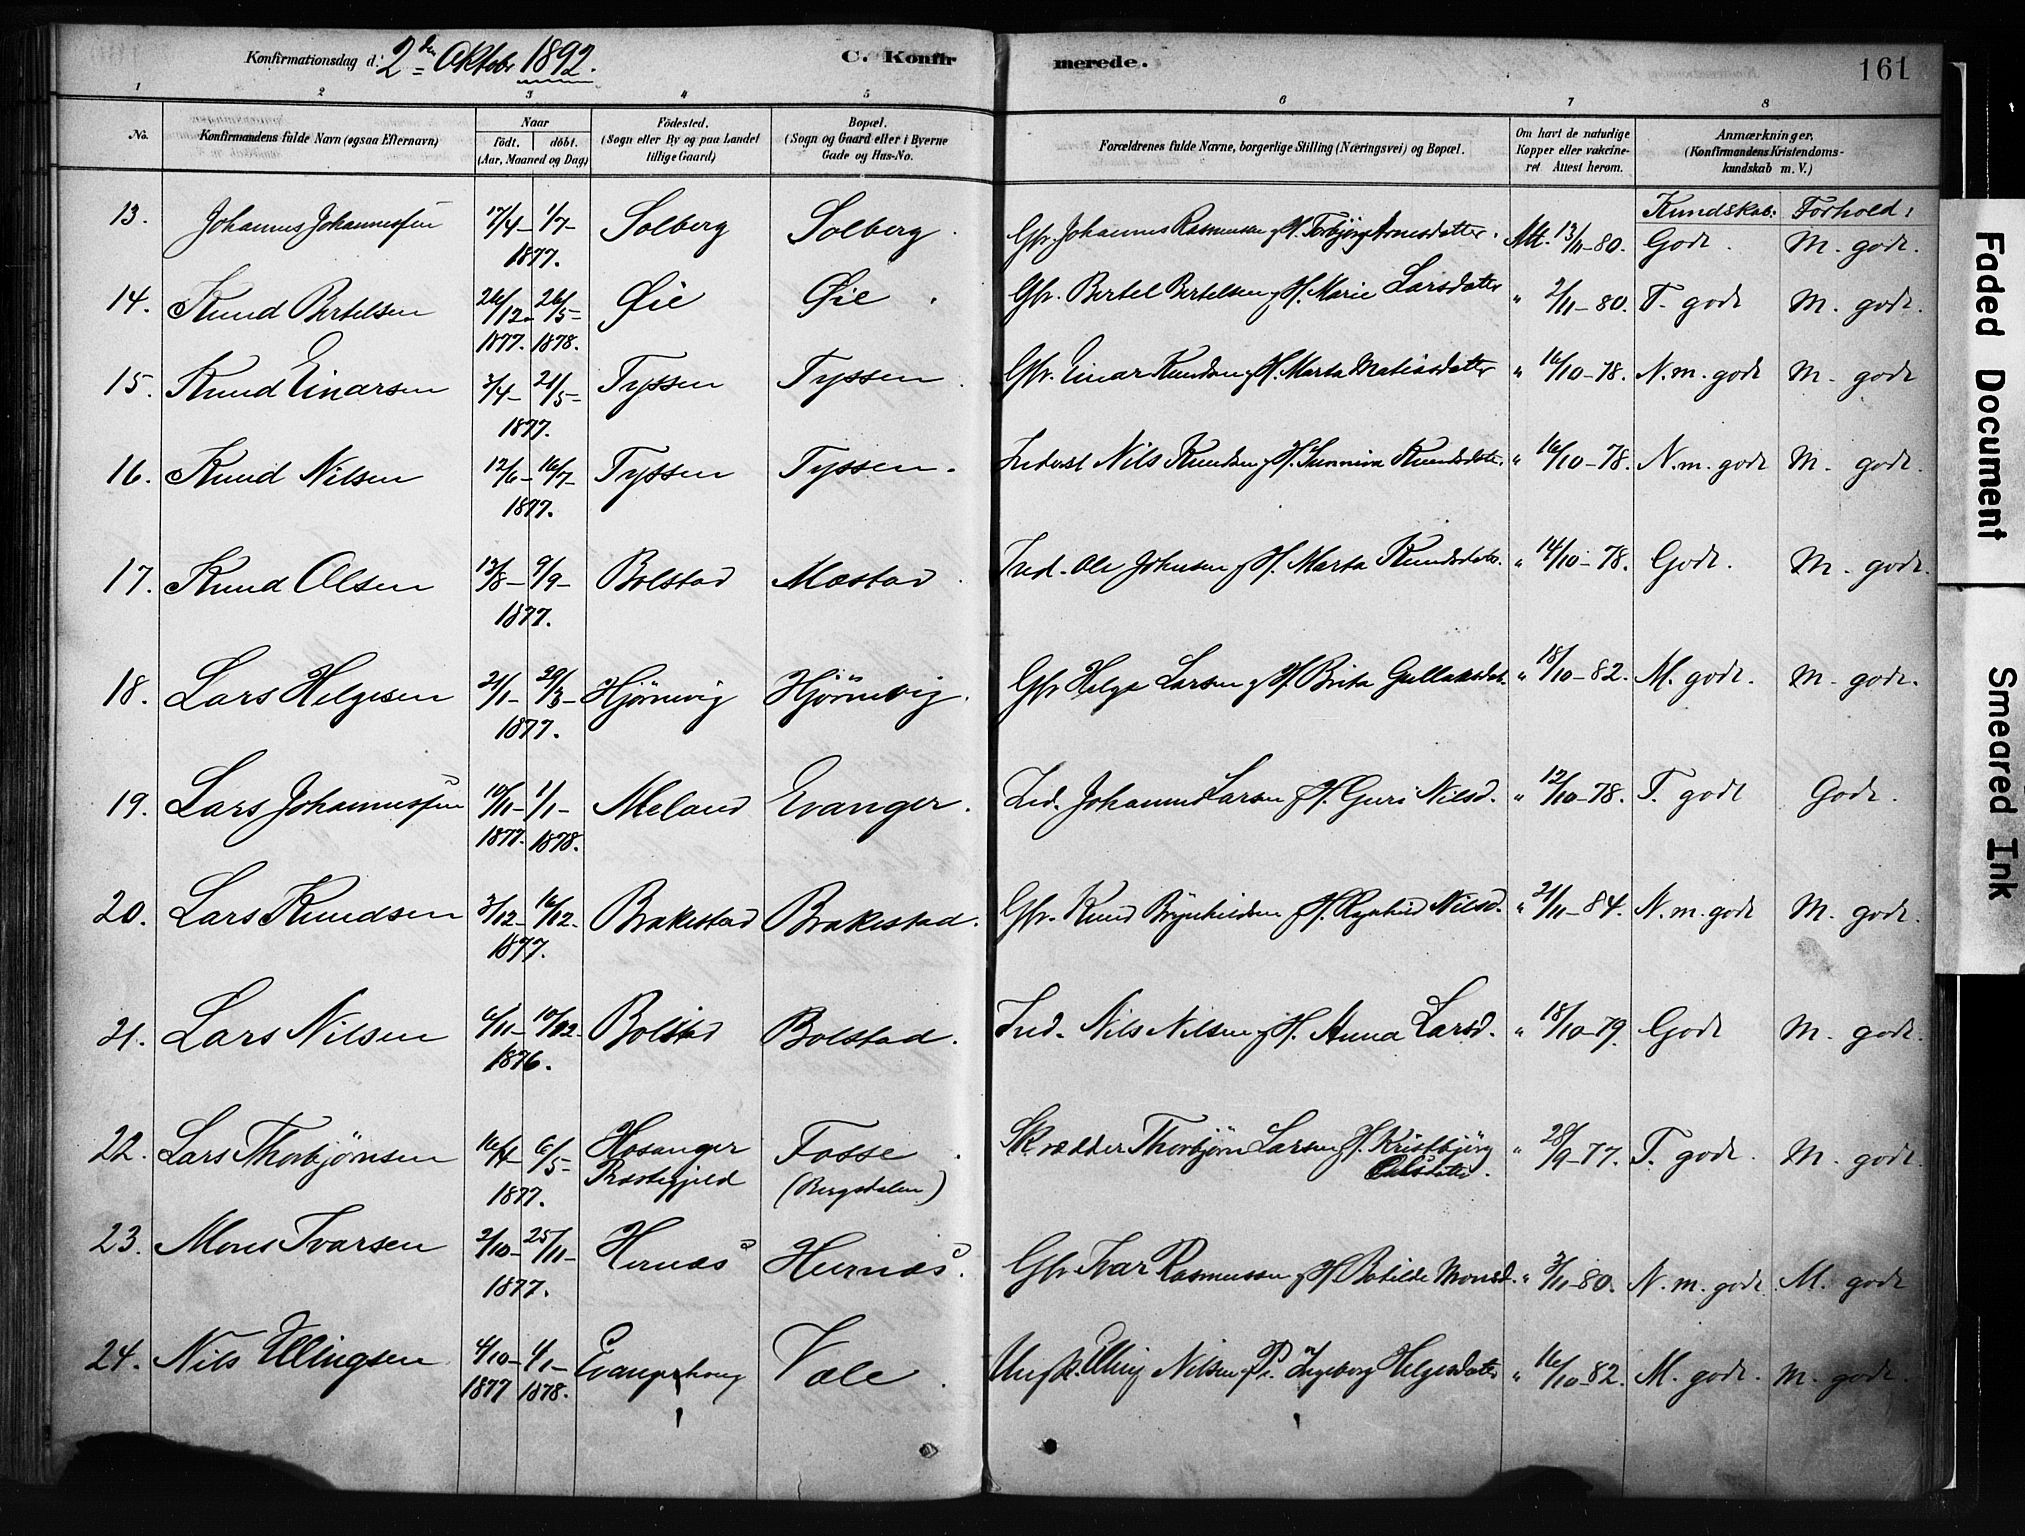 Konfirmationsdag d. 2den Oktobr 1892.
C. Konfirmerede.
161
1 2 3 4 5 6 7 8
No.
Konfirmandens fulde Navn (ogsaa Efternavn)
Naar
födt. döbt.
(Aar, Maaned og Dag)
Födested.
(Sogn eller By og paa Landet
tillige Gaard)
Bopæl.
(Sogn og Gaard eller i Byerne
Gade og Hus-No.
Forældrenes fulde Navne, borgerlige Stilling (Næringsvei) og Bopæl.
Om havt de naturlige
Kopper eller vakcine-
ret Attest herom.
Anmærkninger,
(Konfirmandens Kristendoms-
kundskab m. V.)
Kundskab: Forhold:
13. Johannes Johannessen 17/4- 1/7- Solberg Solberg. Gbr. Johannes Rasmussen og H. Torbjørg Arnesdatter. Att. 13/11-80. Godt. M. godt.
1877.
14. Knud Bertelsen 26/12- 26/5- Øie Øie. Gbr. Bertel Bertelsen og H. Marie Larsdatter " 2/11-80. T. godt M. godt.
1877. 1878.
15. Knud Einarsen 3/4- 21/5- Tyssen Tyssen. Gbr. Einar Knudsen og H. Marta Matiasdatter " 16/10-78. N. m. godt M. godt
1877.
16. Knud Nilsen 12/6- 16/7- Tyssen Tyssen. Inderst Nils Knudsen og H. Sunniva Knudsdatter. " 16/10-78. N. m. godt M. godt.
1877.
17. Knud Olsen 13/8- 9/9- Bolstad Mæstad. Ind. Ole Johnsen og H. Marta Knudsdatr. " 14/10-78. Godt. M. godt.
1877.
18. Lars Helgesen 21/1- 29/3- Hjørnevig Hjørnevig. Gbr Helge Larsen og H. Brita Gullaksdat. " 18/10-82. M. godt. M. godt.
1877.
19. Lars Johannessen 10/11- 1/1- Meland Evanger. Ind. Johannes Larsen og H. Guri Nilsd. " 12/10-78. T. godt Godt.
1877. 1878.
20. Lars Knudsen 3/12- 16/12- Brakestad Brakestad. Gbr. Knud Brynhildsen og H. Ragnhild Nilsd. " 21/11-84. N. m. godt M. godt.
1877.
21. Lars Nilsen 6/11- 10/12- Bolstad Bolstad. Ind. Nils Nilsen og H. Anna Larsd. " 18/10-79. Godt M. godt.
1876.
22. Lars Thorbjørnsen 16/4- 6/5- Hosanger Fosse. Skrædder Thorbjørn Larsen og H. Kristbjørg " 28/9-77. T. godt. M. godt
1877. (Bergsdalen)
23. Mons Ivarsen 2/10- 25/11- Hernæs Hernæs. Gbr Ivar Rasmussen og H Botilde Monsd. " 3/11-80. N. m. godt. M. godt
1877.
24. Nils Ellingsen 4/10- 4/1- Evangerhaug Væle. Ungk. Elling Nilsen og Pi. Ingeborg Helgesdatr " 16/10-82. M. godt. M. godt.
1877 1878.
Faded Document
Smeared Ink